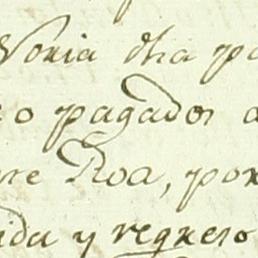 Noria dha pa
o pagador a
re Roa, por
ida y regreso